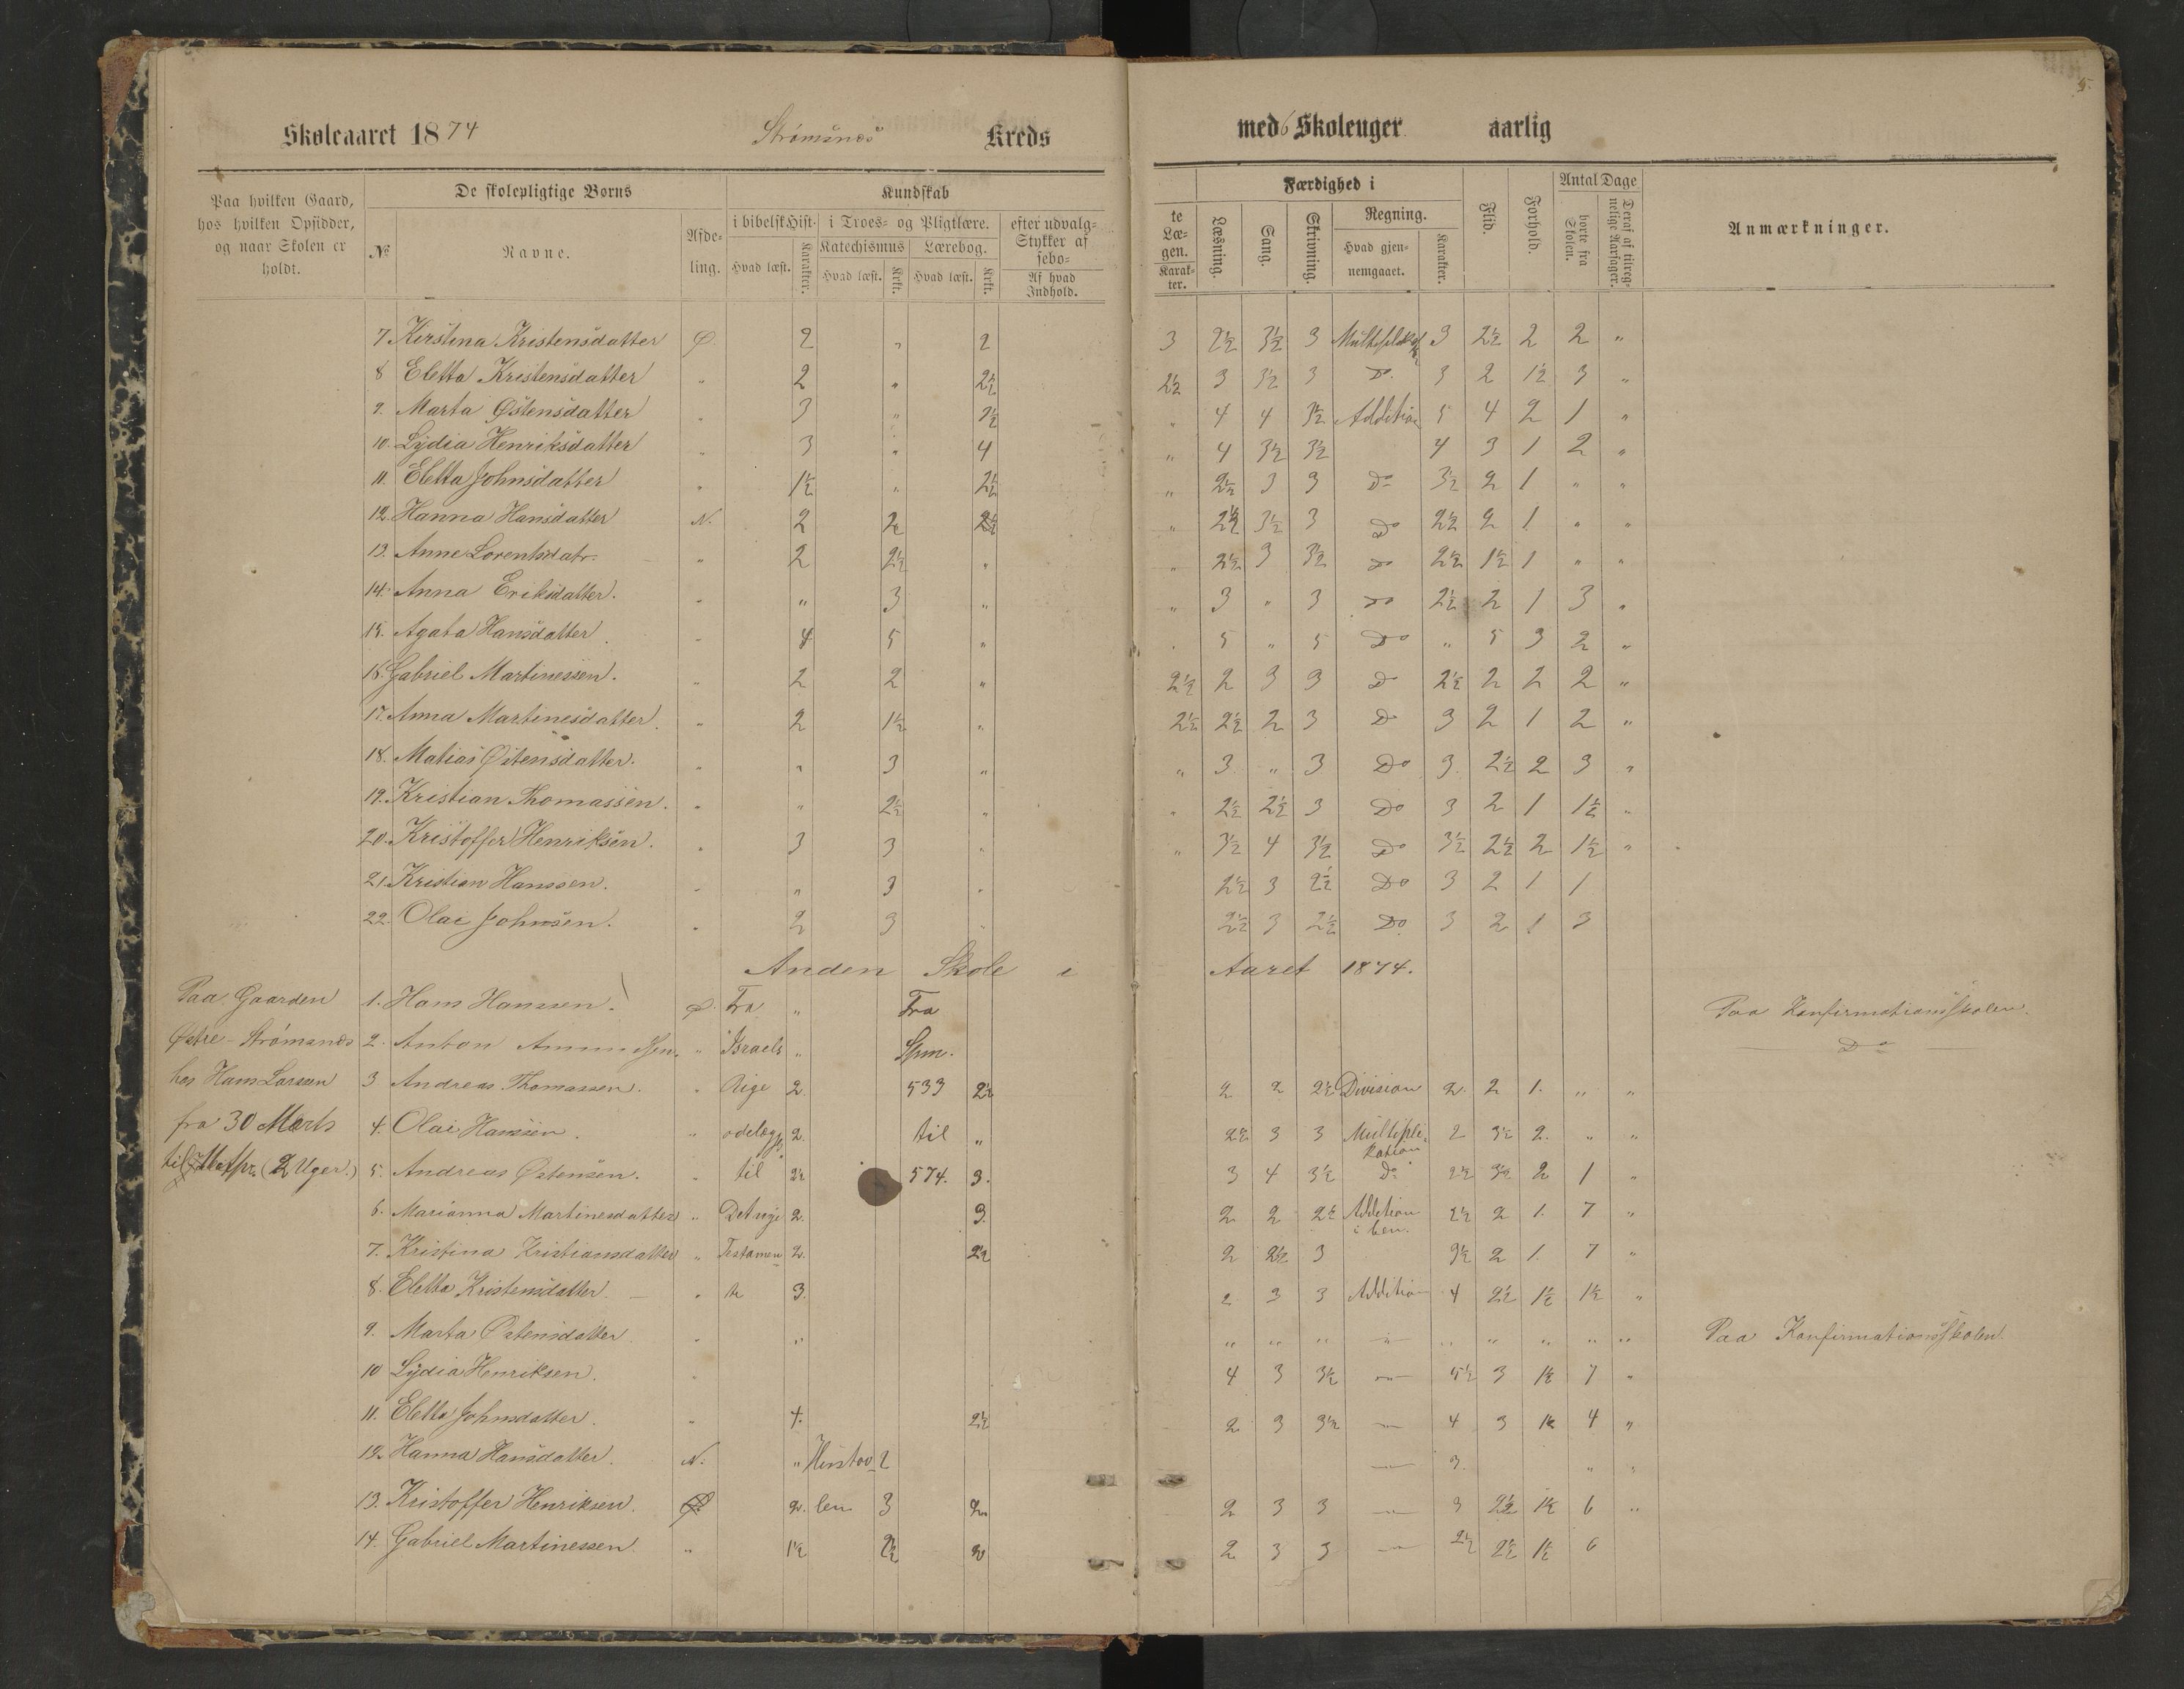 5.
Skoleaaret 1874 Strømsnæs Kreds med 6 Skoleuger aarlig
Paa hvilken Gaard, hos hvilken Opsidder, og naar Skolen er holdt.
De skolepligtige Børns
No Navne. Afdeling.
Kundskab
i bibelsk Hist. i Troes- og Pligtlære. efter udvalg-
Katechismus Lærebog. Stykker af
sebo-
Hvad læst. Karakter. Hvad læst. Krkt. Hvad læst. Krkt. Af hvad Indhold.
te Læ- gen. Karak- ter.
Færdighed i
Læsning. Sang. Skrivning. Regning. Hvad gjen- nemgaaet. Karakter.
Flid. Forhold. Antal Dage borte fra Skolen. Deraf af tilreg- nelige Aarsager.
Anmærkninger.
7 Kirstina Kristensdatter Ø. 2 " 2 3 2½ 3½ 3 3 2½ 2 2 "
8 Eletta Kristensdatter " 2 " 2½ 2½ 3 3½ 3 Do. 3 2 1½ 3 "
9. Marta Østensdatter " 3 " 2½ " 4 4 3½ Addition 5 4 2 1 "
10. Lydia Henriksdatter " 3 " 4 " 4 3½ 3½ 4 3 1 2 "
11. Eletta Johnsdatter " 1½ " 2½ " 2½ 3 3 Do 3½ 2 1 " "
12. Hanna Hansdatter N. 2 2 2½ " 2½ 3½ 3 Do 2½ 2 1 " "
13. Anne Lorentsdatr. " 2 2½ " " 2½ 3 3½ Do 2½ 1½ 1 " "
14. Anna Eriksdatter. " " 3 " " 3 " 3 Do 2½ 2 1 3 "
15. Agata Hansdatter " 4 5 " " 5 " 5 Do " 5 3 2 "
16. Gabriel Martinessen. " 2 2 " 2½ 2 3 3 Do 2½ 2 2 2 "
17. Anna Martinesdatter. " 2 1½ " 2½ 2½ 2 3 Do 3 2 1 2 "
18. Matias Østensdatter. " " 3 " " 3 " 3 Do 3. 2½ 2 3 "
19. Kristian Thomassen. " " 2½ " " 2½ 2½ 3 Do 3 2 1 1½ "
20. Kristoffer Henriksen. " 3 3 " " 3½ 4 3½ Do 3½ 2½ 2 1½ "
21. Kristian Hanssen. " " 3 " 2½ 3 2½ Do 3 2 1 1
22. Olai Johnsen. " 2 3 " 2½ 3 2½ Do 3 2 1 3
Anden Skole i Aaret 1874.
Paa Gaarden 1. Hans Hanssen. Ø. Fra " Fra Paa Konfirmationsskolen.
Østre-Strømsnæs 2. Anton Amundsen. " Israels " Spm. Do
hos Hans Larssen 3 Andreas Thomassen. " Rige 2. 533 2½ 2 2 2½ Division 2. 2 1. " "
fra 30 Marts 4. Olai Hanssen. " ødelæg 2. til " 2½ 3 3 Multipli- kation 2 3½ 2. " "
(2 Uger.) 5. Andreas Østensen. " til 2½ 574. 3. 3 4 3½ Do 2½ 3½ 2 1 "
6. Marianna Martinesdatter " Det nye 2. 3. 2 2 2½ Addition i ben. 2½ 2 1. 7 "
7. Kristina Kristiansdatter " Testamen- 2. 2½ 2 2½ 3 3½ 2 1. 7 "
8. Eletta Kristensdatter. " te 3. 2 3 3 Addition 4 2½ 1½ 1½ "
9. Marta Østensdatter. " " " " " " " " " " " Paa Konfirmationsskolen.
10 Lydia Henriksen. " 4 3 3½ " 5½ 3 1½ 7 "
11. Eletta Johnsdatter. " 4. 2½ 2 3 3½ " 4 3 1½ 4 "
12. Hanna Hansdatter. N. " 2 " 3. " "
13. Kristoffer Henriksen. Ø 2. len 3 2 2 3 3 " 3 2½ 1½ 6 "
14. Gabriel Martinessen. " 1½ 2½ 2 2 3 3 " 2½ 2½ 1½ 6